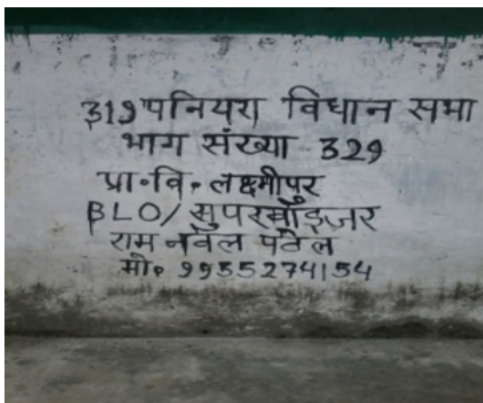 319 पनियरा विधान सभा
भाग संख्या 329
प्रा॰वि॰ लक्ष्मीपुर
BLO/ सुपरवाँइजर
राम नवल पटेल
मो॰ 9935274154